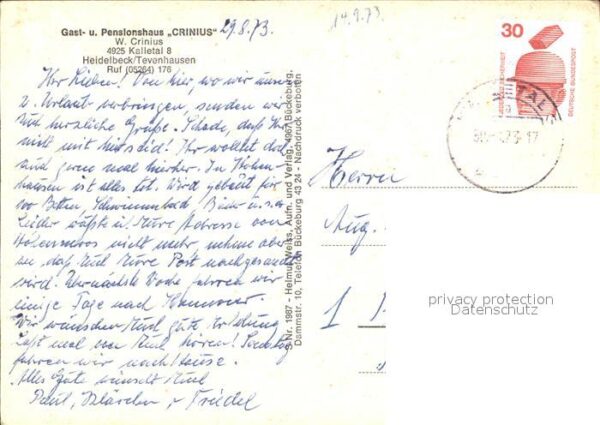 Gast- u. Pensionshaus „CRINIUS"
W. Crinius
4925 Kalletal 8
Heidelbeck/Tevenhausen
Ruf (05264) 178
29.8.73.
14.9.73
30
DEUTSCHE BUNDESPOST
Ihr Lieben! Von hier, wo wir unseren
2. Urlaub verbringen, senden wir
Euch herzliche Grüße. Schade, daß Ihr
nicht mit hier seid! Ihr wolltet doch
auch gern mal hierher. In
hausen ist alles tot. Wird gebaut für
100 Betten, Schwimmbad, u.s.w.
Leider wußte ich Eure Adresse von
nicht mehr, nehme aber
an, daß Euch Eure Post nachgesandt
wird. Übernächste Woche fahren wir
einige Tage nach Hannover.
Wir wünschen Euch gute Erholung
Laßt mal von Euch hören! Sonntag
fahren wir nach Hause.
Alles Gute wünscht Euch
Paul, Klärchen u. Friedel
S.Nr. 1987 - Helmut Weiss, Aufn. und Verlag, 4967 Bückeburg,
Dammstr. 10, Telefon Bückeburg 43 24 - Nachdruck verboten
Herrn
Aug.
1
privacy protection
Datenschutz